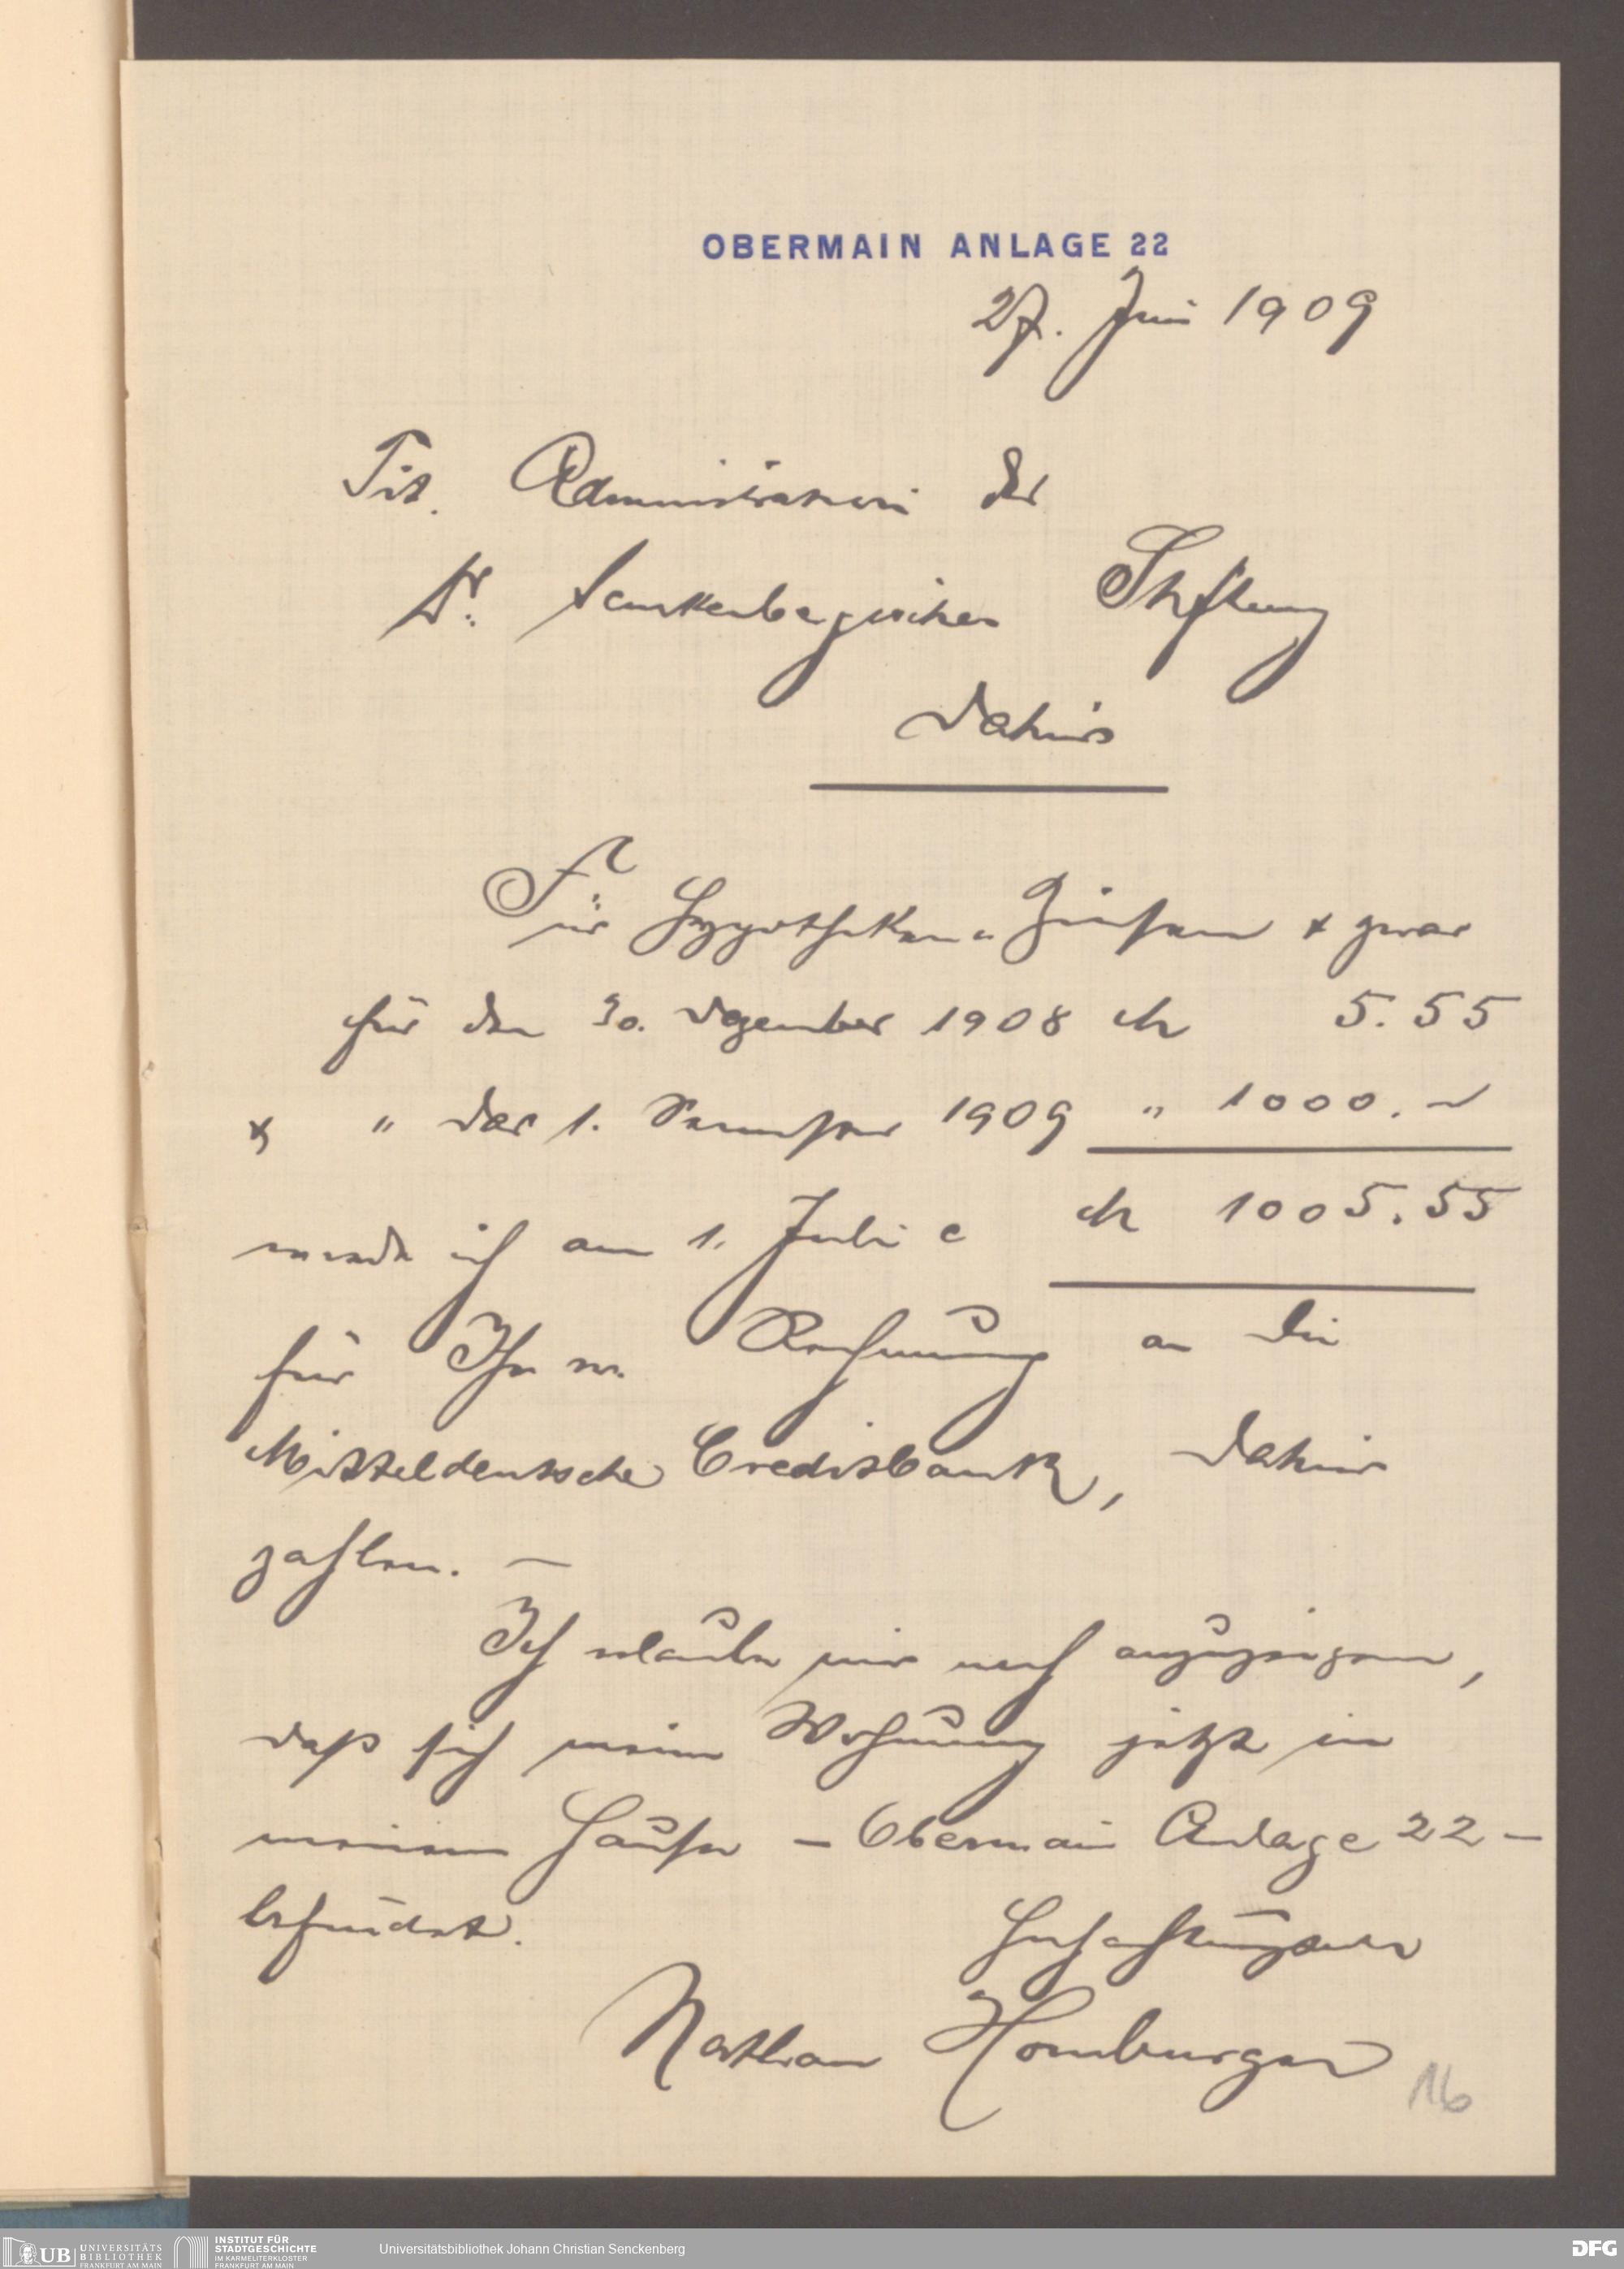 OBERMAIN ANLAGE 22
27. Juni 1909
Tit. Administration der
Dr. Senckenbergischen Stiftung
dahier
Für Hypotheken-Zinsen & zwar
für den 30. Dezember 1908 M 5.55
& " das 1. Semester 1909 " 1000.–
werde ich am 1. Juli c M 1005.55
für Ihre w. Rechnung an die
Mitteldeutsche Creditbank, dahier
zahlen. –
Ich erlaube mir noch anzuzeigen,
daß sich meine Wohnung jetzt in
meinem Hause – Obermain Anlage 22 –
befindet.
Hochachtungsvoll
Nathan Homburger
16
UB UNIVERSITÄTS
BIBLIOTHEK
FRANKFURT AM MAIN
INSTITUT FÜR
STADTGESCHICHTE
IM KARMELITERKLOSTER
FRANKFURT AM MAIN
Universitätsbibliothek Johann Christian Senckenberg
DFG